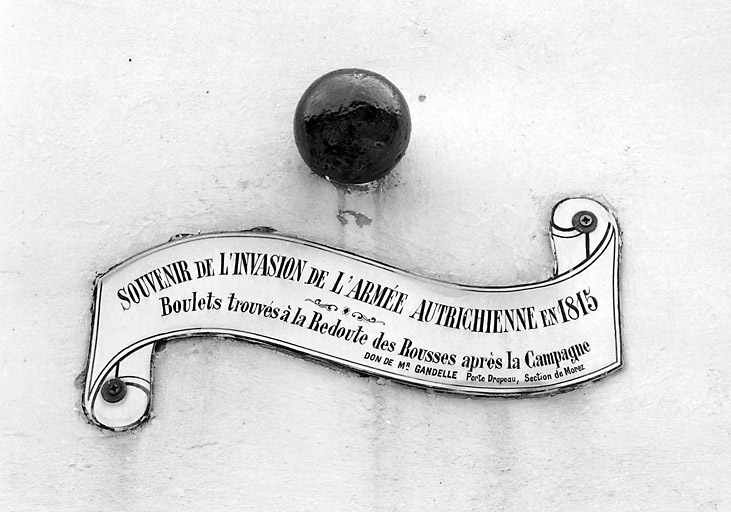 SOUVENIR DE L'INVASION DE L'ARMÉE AUTRICHIENNE EN 1815
Boulets trouvés à la Redoute des Rousses après la Campagne
DON DE MR. GANDELLE Porte Drapeau, Section de Morez